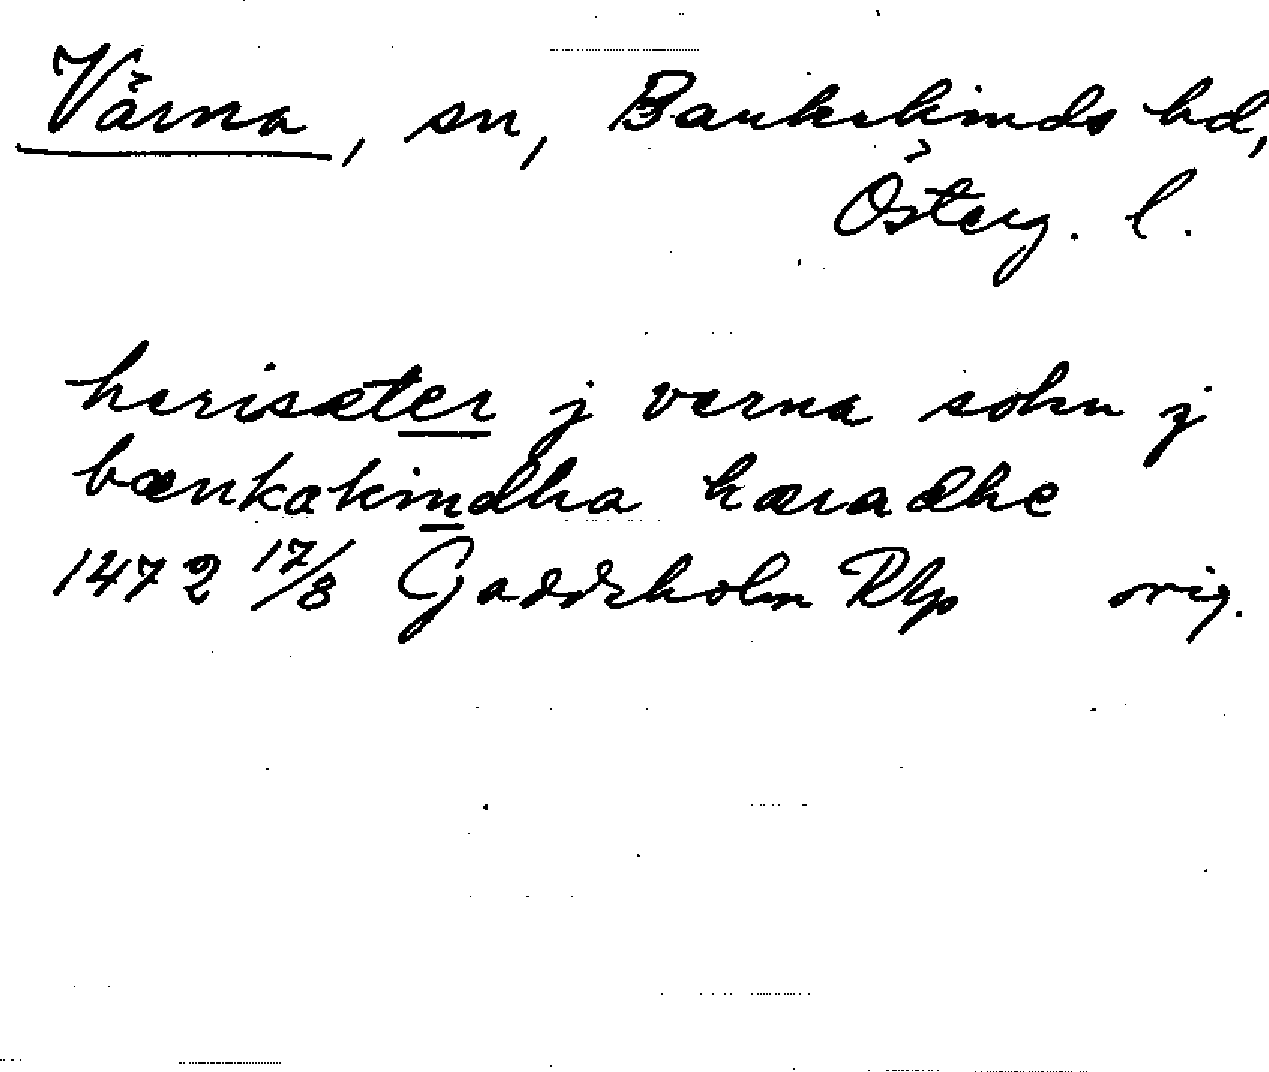 Värna, sn, Bankekinds hd,
Österg. l.
herisæter j værna sokn j
bænkækindha hæradhe
1472 17/8 Gaddeholm Rbp orig.